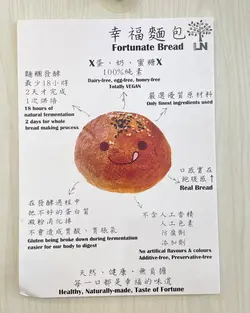 幸福麵包
Fortunate Bread
LN
X蛋、奶、蜜糖X
100%純素
Dairy-free, egg-free, honey-free
Totally VEGAN
麵糰發酵
最少18小時
2天才完成
1次烘焙
18 hours of
natural fermentation
2 days for whole
bread making process
嚴選優質原材料
Only finest ingredients used
口感實在
飽腹感↑
Real Bread
在發酵過程中
把不好的蛋白質
澱粉消化掉
不會造成胃酸、胃脹氣
Gluten being broke down during fermentation
easier for our body to digest
不含人工香精
人工色素
防腐劑
添加劑
No artifical flavours & colours
Additive-free, Preservative-free
天然、健康、無負擔
每一口都是幸福的味道
Healthy, Naturally-made, Taste of Fortune